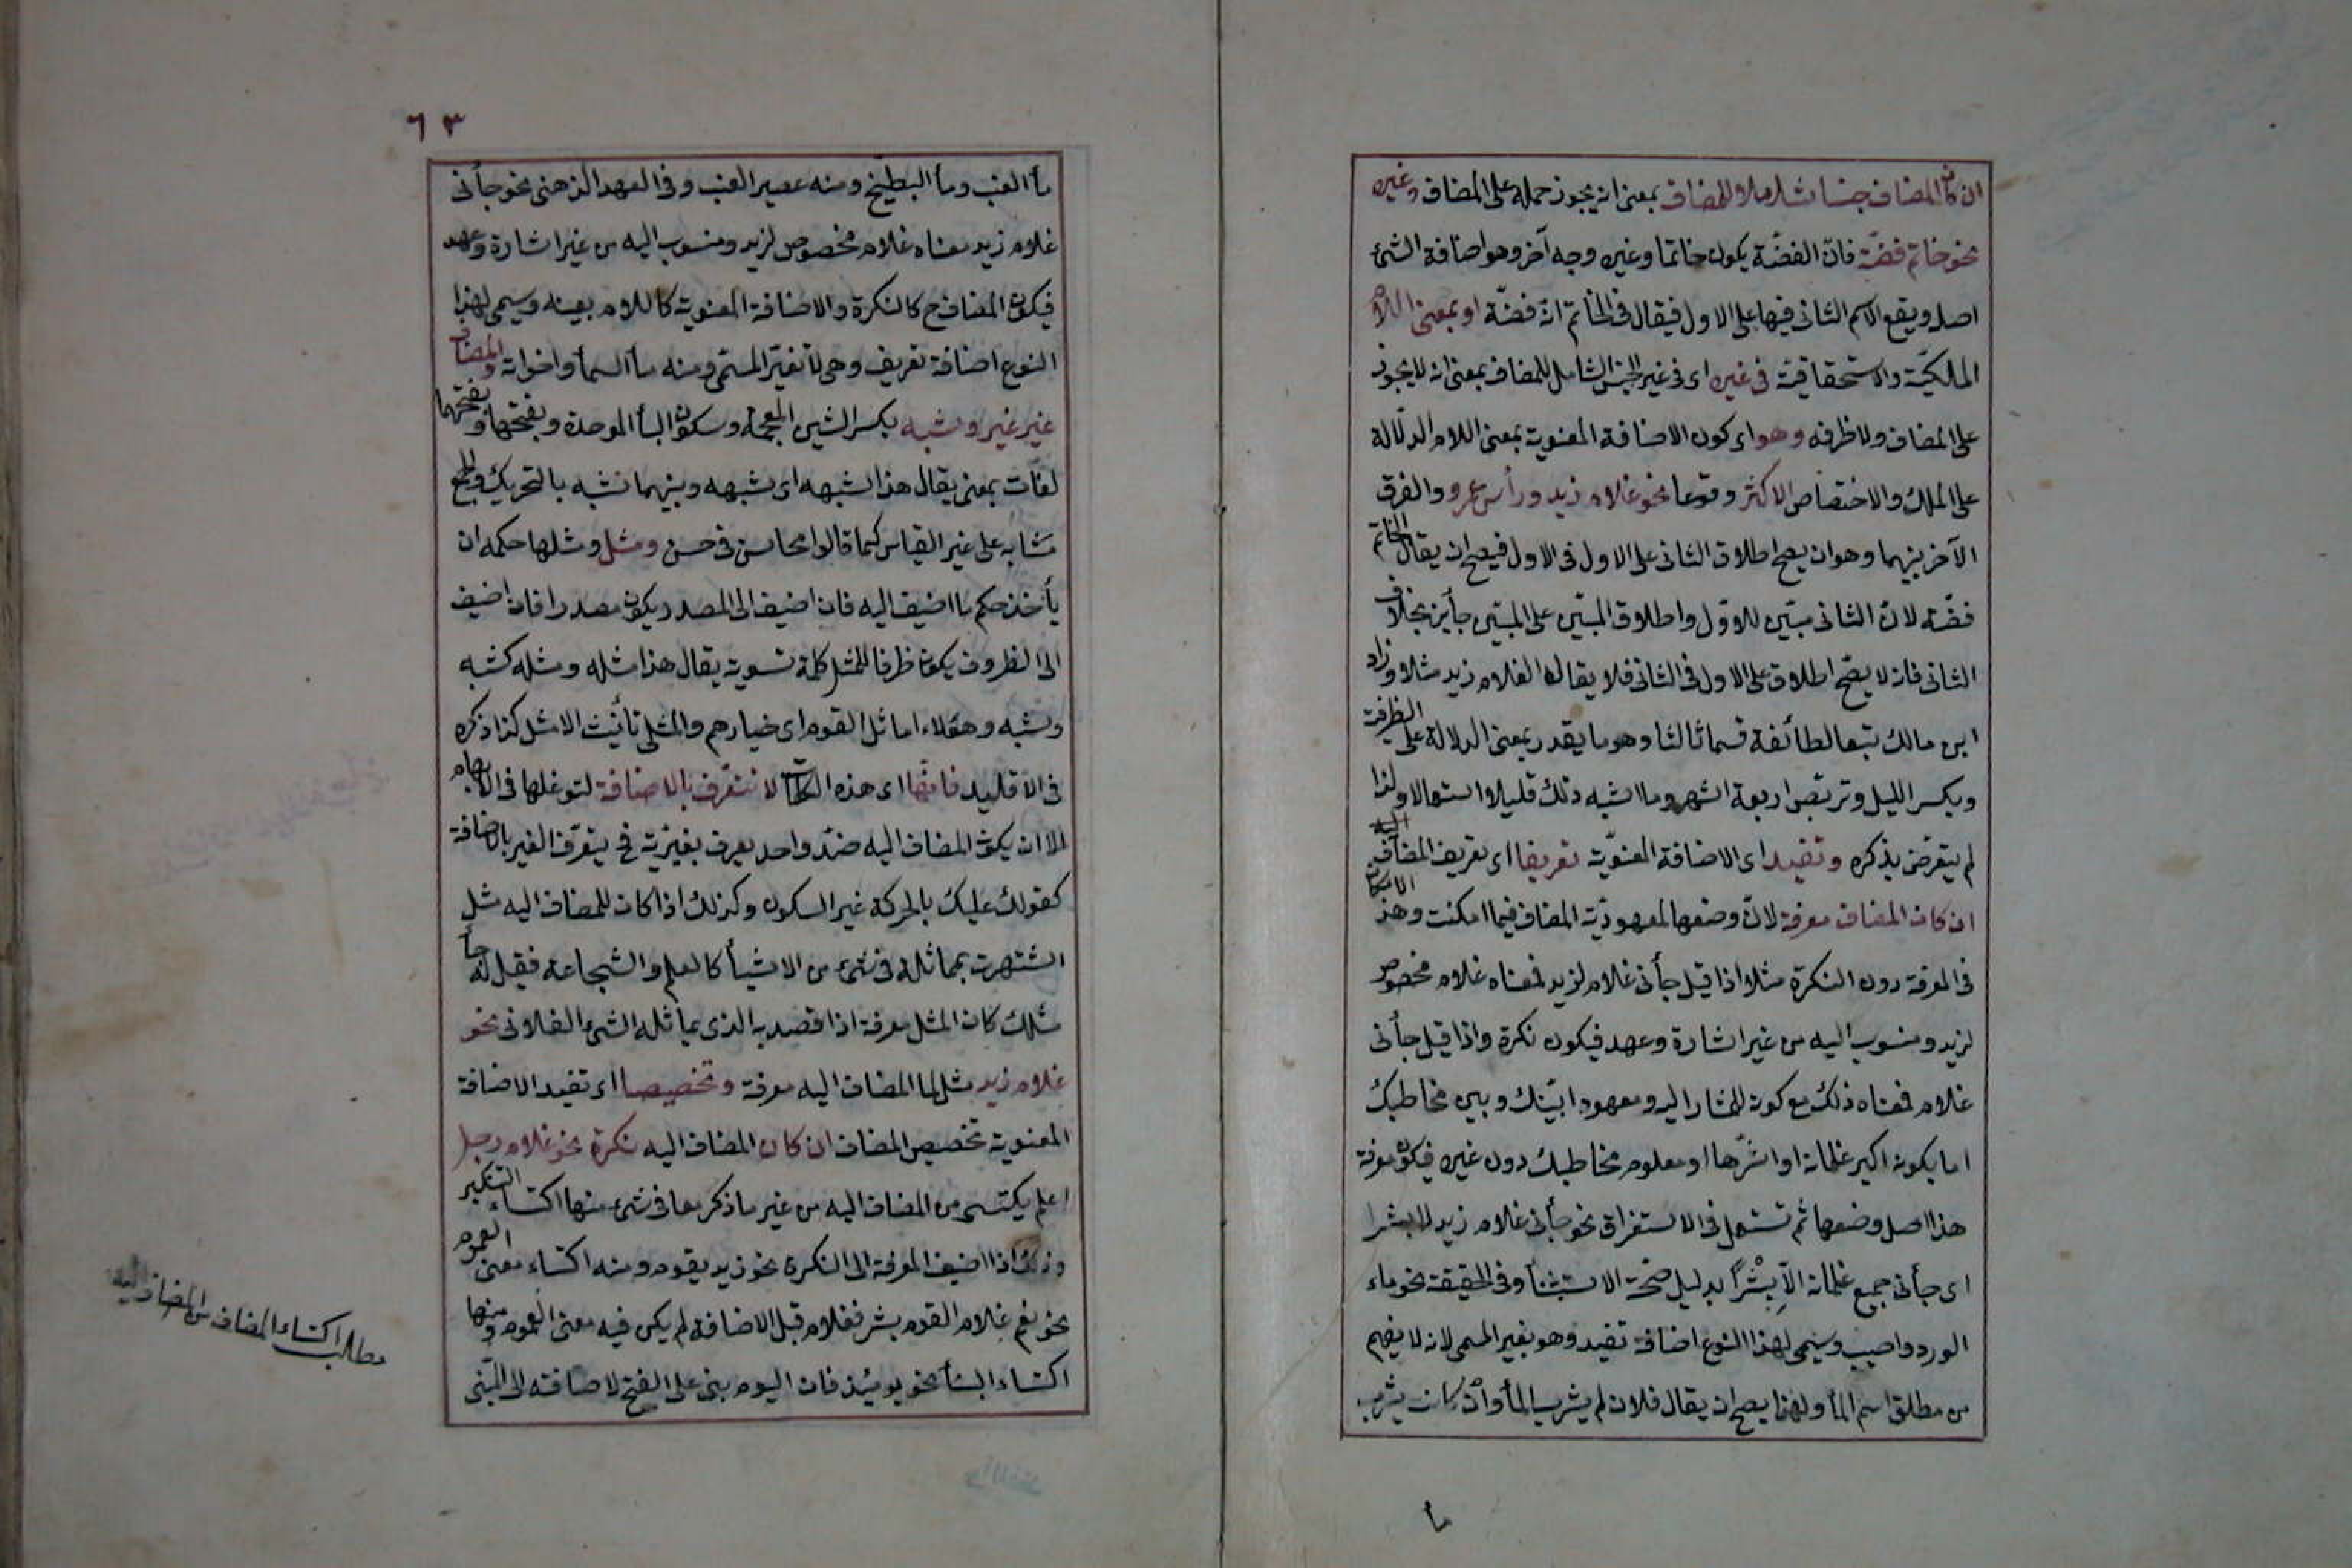 ان كان المضاف جنسا شاملا للمضاف بمعنى انه يجوز حمله على المضاف وغيره
نحو خاتم فضّة فانّ الفضّة يكون خاتما وغيره وجه آخر وهو اضافة الشئ
اصله ويقع الاسم الثانى فيها على الاول فيقال فى الخاتم انه فضّة او بمعنى اللام
المالكيّة والاستحقاقيّة فى غيره اى فى غير الجنس الشامل للمضاف بمعنى انه لا يجوز
على المضاف ولا ظرفه وهو اى كون الاضافة المعنوية بمعنى اللام الدلالة
على الملك والاختصاص الاكثر وقوعا نحو غلام زيد ورأس عمرو والفرق
الآخر بينهما وهو ان يصح اطلاق الثانى على الاول فى الاول فيصح ان يقال الخاتم
فضّة لانّ الثانى مبيّن للاوّل واطلاق المبيّن على المبيّن جأيز بخلاف
الثانى فانه لا يصّح اطلاق على الاول فى الثانى فلا يقال الغلام زيد مثلا وزاد
ابن مالك تبعا لطائفة قسما ثالثا وهو ما يقدر بمعنى الدلالة على الظرفية
وبكسر الليل وتربّص اربعة اشهر وما اشبه ذلك قليلا استعمالا ولذا
لم يتعرّض بذكره وتفيد اى الاضافة المعنويّة تعريفا اى تعريف المضاف اليه
ان كان المضاف معرفة لانّ وضعها لمعهوديّة المضاف فيما امكنت وهذ الامكان
فى المعرفة دون النكرة مثلا اذا قيل جأنى غلام لزيد فمعناه غلام مخصوص
لزيد ومنسوب اليه من غير اشارة وعهد فيكون نكرة واذا قيل جأنى
غلام فمعناه ذلك مع كون المشار اليه ومعهودا بينك وبين مخاطبك
اما بكونه اكبر غلمانه او اشرّها او معلوم مخاطبك دون غيره فيكون معرفة
هذا اصل وضعها ثم تستعمل فى الاستغراق نحو جأنى غلام زيد لا بشرا
اى جأنى جميع غلمانه الّا بِشْراً بدليل صّحة الاستثنأ وفى الحقيقة نحو ماء
الورد واصيب ويسمى لهذا النوع اضافة تقيد وهو بغير المسمى لانه لا يفهم
من مطلق اسم المأ ولهذا يصح ان يقال فلان لم يشرب المأ وان كان يشرب
ما
٦٣
مأ العنب ومأ البطّيخ ومنه عصير العنب وفى العهد الذهنى نحو جأنى
غلام زيد معناه غلام مخصوص لزيد ومنسوب اليه من غير اشارة وعهد
فيكون المضاف ح كالنكرة والاضافة المعنوية كاللام بعينه ويسمى لهذا
النوع اضافة تعريف وهى لا تغيّر المسمّى ومنه مأ السمأ واخواته والمضاف
غير غير وشبه بكسر الشين المعجمة وسكون البأ الموحدة وبفتحها وفتحهما
لغات بمعنى يقال هذا شبهه اى شبهه وبينهما شبه بالتحريك والجمع
مَشابه على غير القياس كما قالوا محاسن فى حسن ومثل ومثلها حكمه ان
يأخذ حكم ما اضيف اليه فان اضيف الى المصدر يكون مصدرا فان اضيف
الى الظروف يكون ظرفا للمثل كلمة تسوية يقال هذا مثله ومثله كشبه
وشبه وهؤلاء اماثل القوم اى خيارهم والمثلى تأنيث الامثل كذا ذكره
فى الاقليد فانّها اى هذه الكلمات لا تتعرّف بالاضافة لتوغلها فى الابهام
الا ان يكون المضاف اليه ضدّ واحد يعرف بغيريّة فح يتعرّف الغير بالاضافة
كقولك عليك بالحركة غير السكون وكذلك اذا كان للمضاف اليه مثل
اشتهرت بمماثلة فى شئ من الاشيأ كالعلم والشجاعة فقيل له جأ
مثلك كان المثل معرفة اذا قصد به الذى يماثله الشئ الفلانى نحو
غلام زيد مثل لما المضاف اليه معرفة وتخصيصا اى تفيد الاضافة
المعنوية تخصيص المضاف ان كان المضاف اليه نكرة نحو غلام رجل
اعلم يكتسى من المضاف اليه من غير ما ذكر معا فى شئ منها اكتساء التنكير
وذلك اذا اضيف المعرفة الى النكرة نحو زيد يقوم ومنه اكتساء معنى العموم
نحو نعم غلام القوم بشر فغلام قبل الاضافة لم يكن فيه معنى العموم ومنها
اكتساء البنأ نحو يومئذ فان اليوم بنى على الفتح لاضافته الى المبنى
مطلب اكتساء المضاف من المضاف اليه